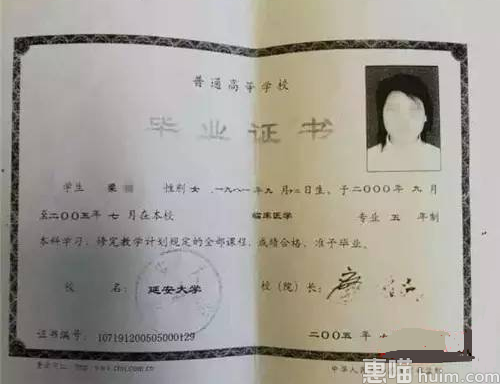 普通高等学校
毕业证书
学生 梁 性别 女 ,一九八一年 九 月 日生, 于二〇〇〇年 九 月
至二〇〇五年 七 月在本校 临床医学 专业 五 年制
本科学习, 修完教学计划规定的全部课程, 成绩合格, 准予毕业。
校 名: 延安大学 校(院)长:
证书编号: 107191200505000129 二〇〇五年
查询网址: http://www.chsi.com.cn 中华人民
惠喵 huim.com